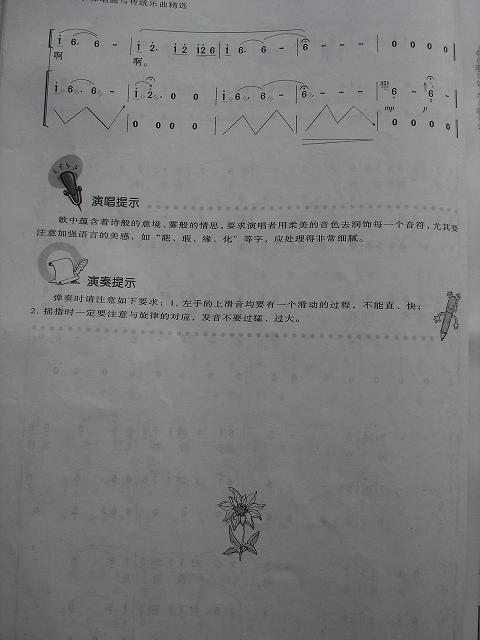 唱曲与传统乐曲精选
i 6· 6 - | i 2· i 2 i 2 6 | i 6· 6 - | 6 - - - | 0 0 0 0
啊 啊。
i 6· 6 - | i 2· 0 0 | i 6· 6 - | 6 - - - | 321 6 - 6 -
mp p
0 0 0 0 0 0
演唱提示
歌中蕴含着诗般的意境、雾般的情思,要求演唱者用柔美的音色去润饰每一个音符,尤其要
注意加强语言的美感,如“葩、瑕、缘、化”等字,应处理得非常细腻。
演奏提示
弹奏时请注意如下要求:1. 左手的上滑音均要有一个滑动的过程,不能直、快;
2. 摇指时一定要注意与旋律的对应,发音不要过猛、过大。